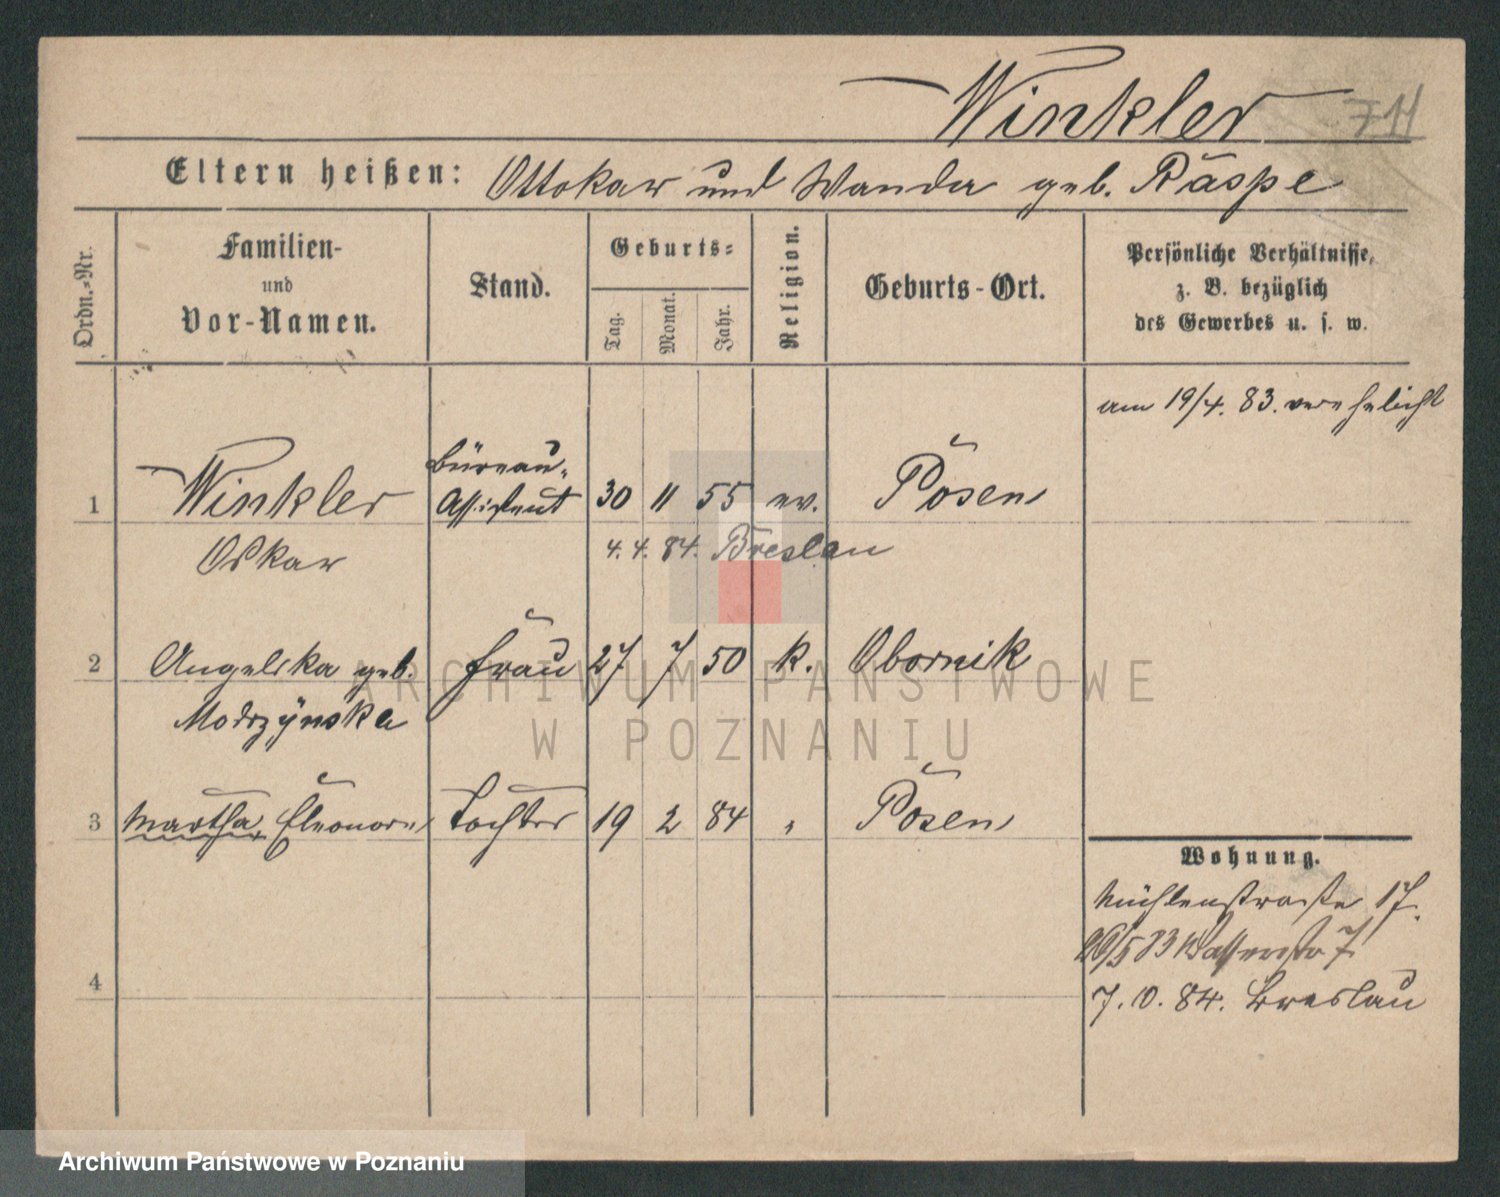 Winkler 711
Eltern heißen: Ottokar und Wanda geb. Räspe
Ordn.-Nr.
Familien-
und
Vor-Namen.
Stand.
Geburts-
Tag.
Monat.
Jahr.
Religion.
Geburts-Ort.
Persönliche Verhältnisse,
z. B. bezüglich
des Gewerbes u. s. w.
am 19/4. 83. verehelicht
Büreau-
1 Winkler Assistent 30 11 55 ev. Posen
Oskar 4. 4. 84. Breslau
2 Angelika geb. Frau 27 7 50 k. Obornik
Modrzynska
3 Martha Eleonore Tochter 19 2 84 " Posen
Wohnung.
Mühlenstraße 17.
26/5 83 Wasserstr 7
4
7. 10. 84. Breslau
ARCHIWUM PAŃSTWOWE
W POZNANIU
Archiwum Państwowe w Poznaniu